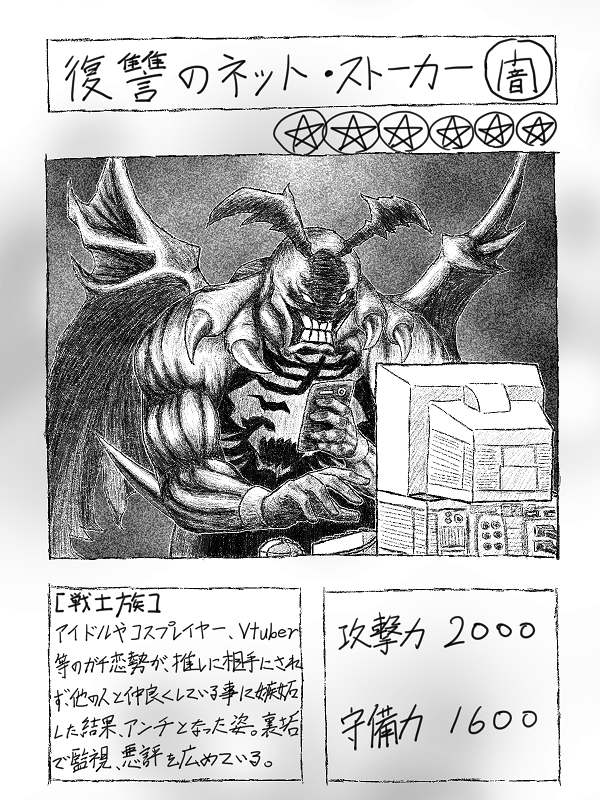 復讐のネット・ストーカー 闇
[戦士族]
アイドルやコスプレイヤー、Vtuber
等のガチ恋勢が、推しに相手にされ
ず、他の人と仲良くしている事に嫉妬
した結果、アンチとなった姿。裏垢
で監視、悪評を広めている。
攻撃力 2000
守備力 1600